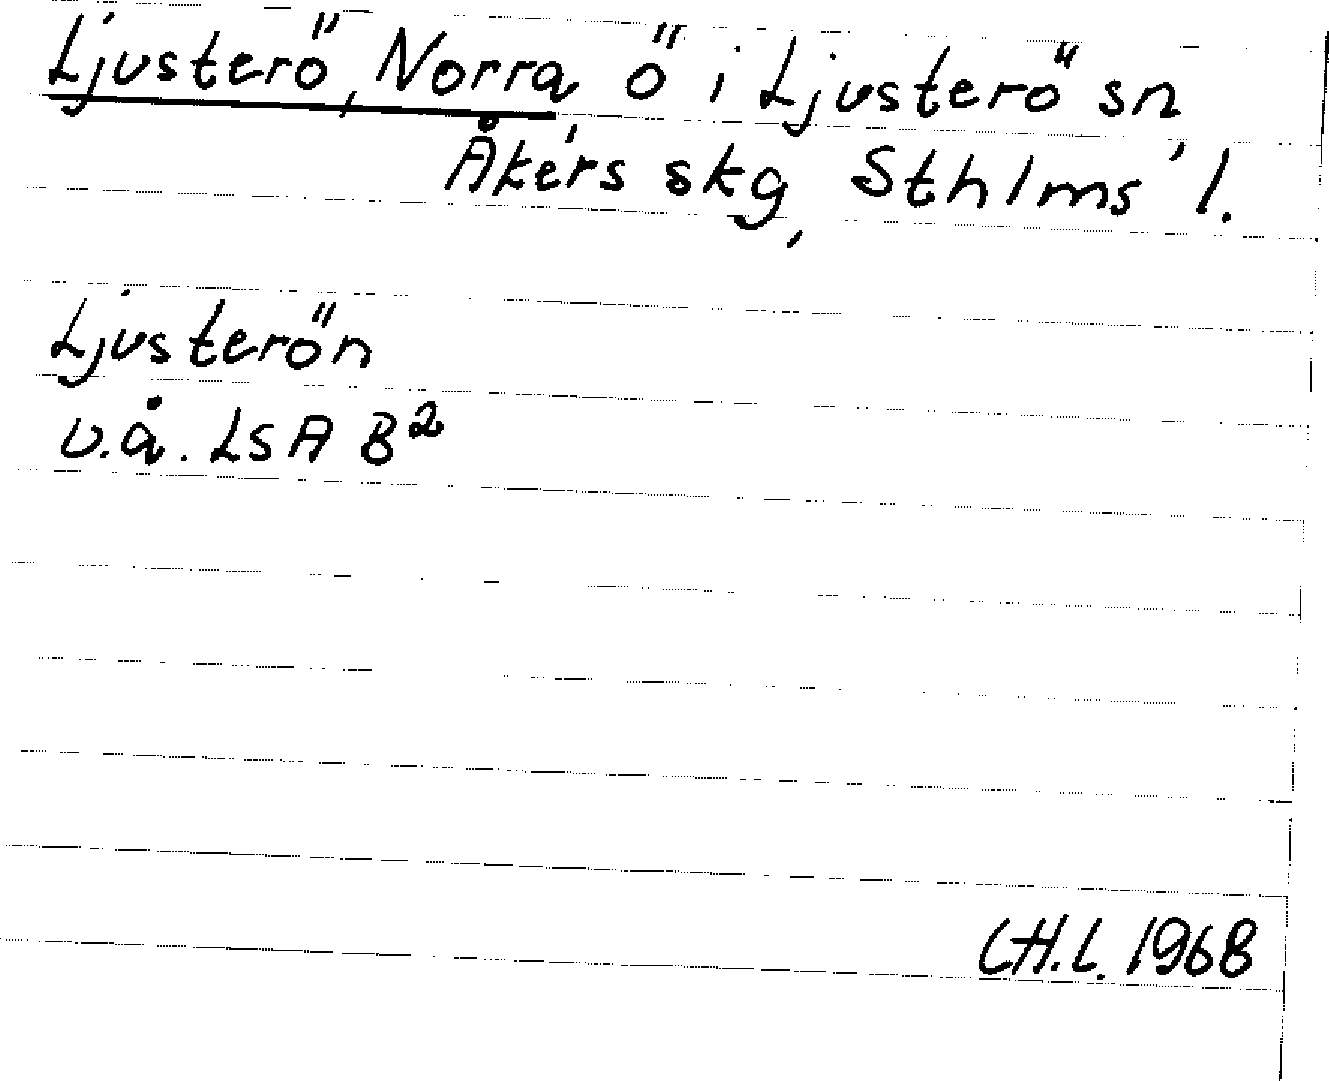 Ljusterö, Norra, ö i Ljusterö sn
Åkers skg, Sthlms l.
Ljusterön
u.å. LSA B²
C.H.L. 1968